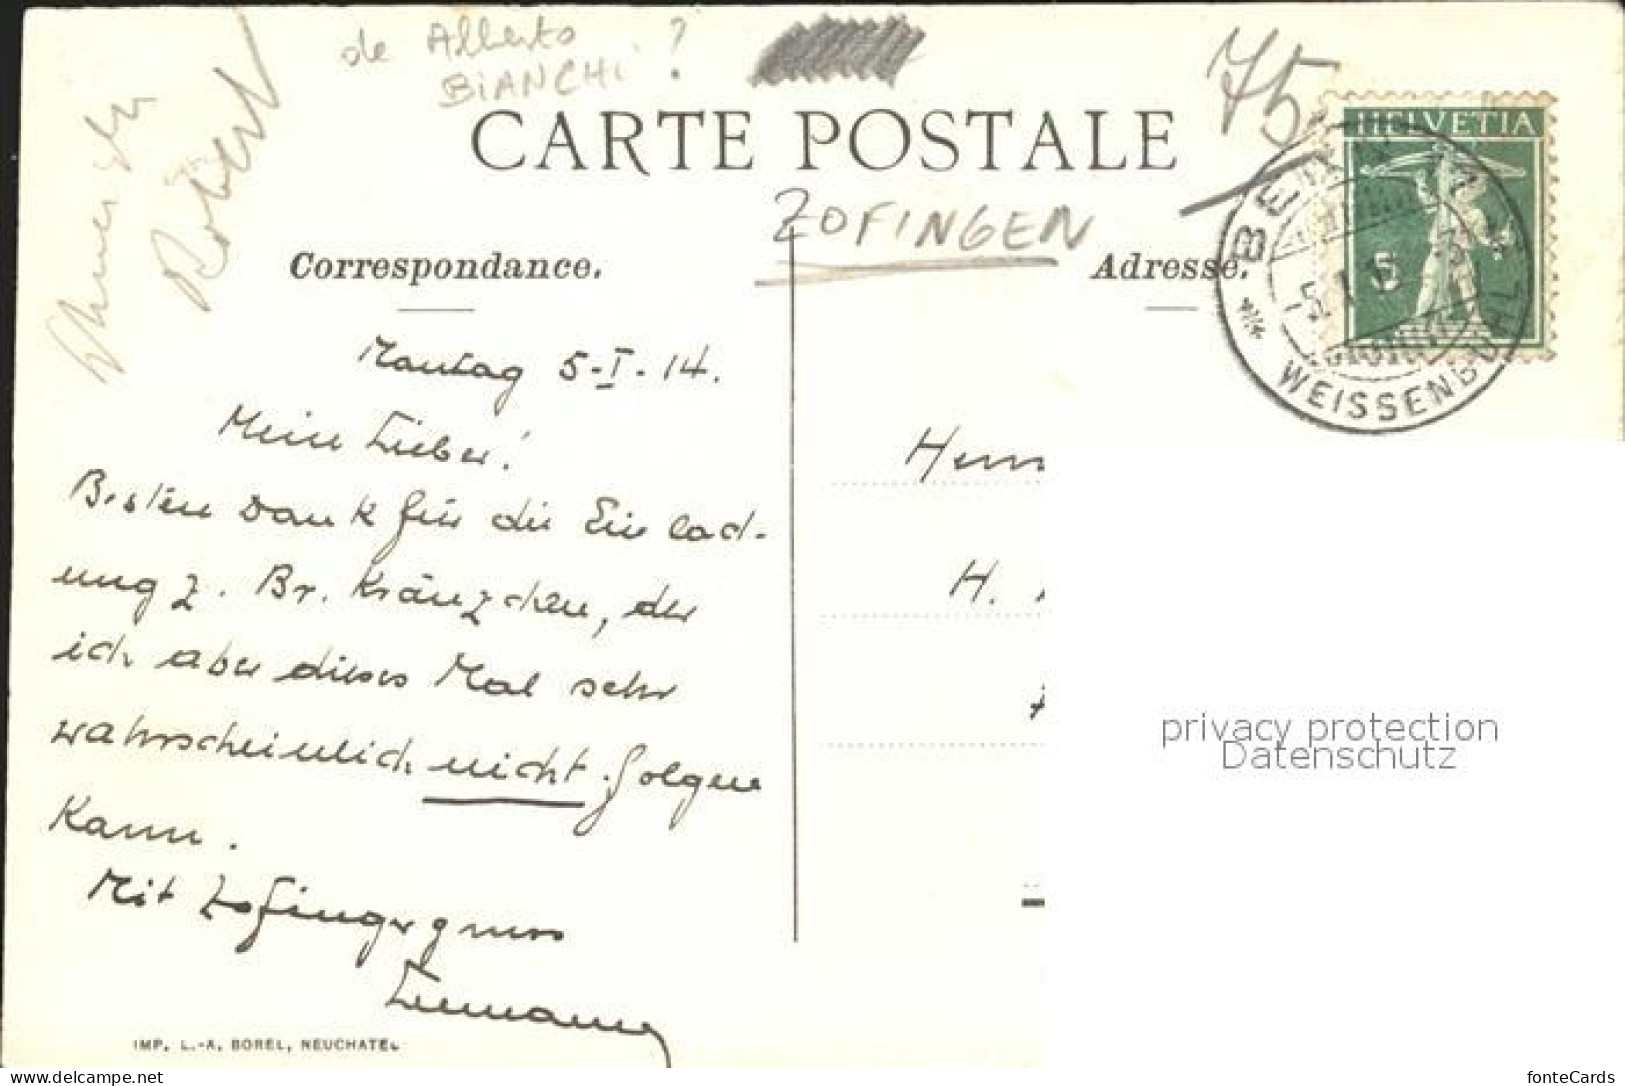 de Alberto
BIANCHI ?
Robert
75
CARTE POSTALE
ZOFINGEN
Correspondance.
Adresse.
HELVETIA
5
BERN
WEISSENBÜHL
Montag 5-I-14.
Mein Lieber!
Besten Dank für die Einlad-
ung z. Br. Kränzchen, der
ich aber dieses Mal sehr
wahrscheinlich nicht folgen
kann.
Mit Zofingergruss
Herrn
H.
privacy protection
Datenschutz
IMP. L.-A. BOREL, NEUCHATEL
delcampe.net
fonteCards